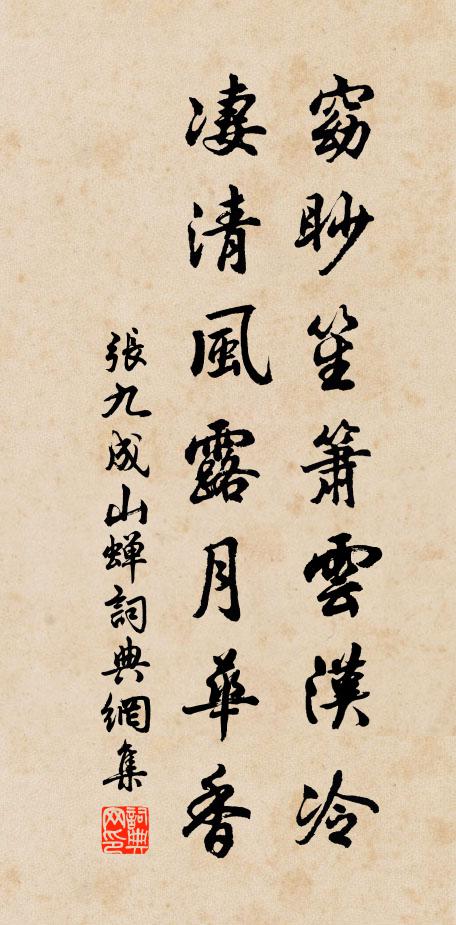 窈眇笙簫雲漢冷
淒清風露月華香
張九成山蟬詞典網集
詞典網印